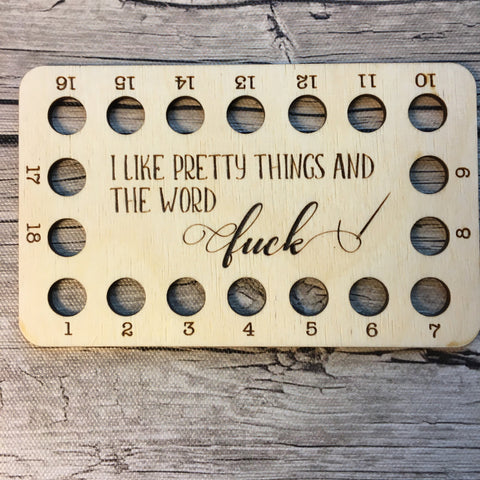 16 15 14 13 12 11 10
17 9
I LIKE PRETTY THINGS AND
THE WORD
fuck
18 8
1 2 3 4 5 6 7